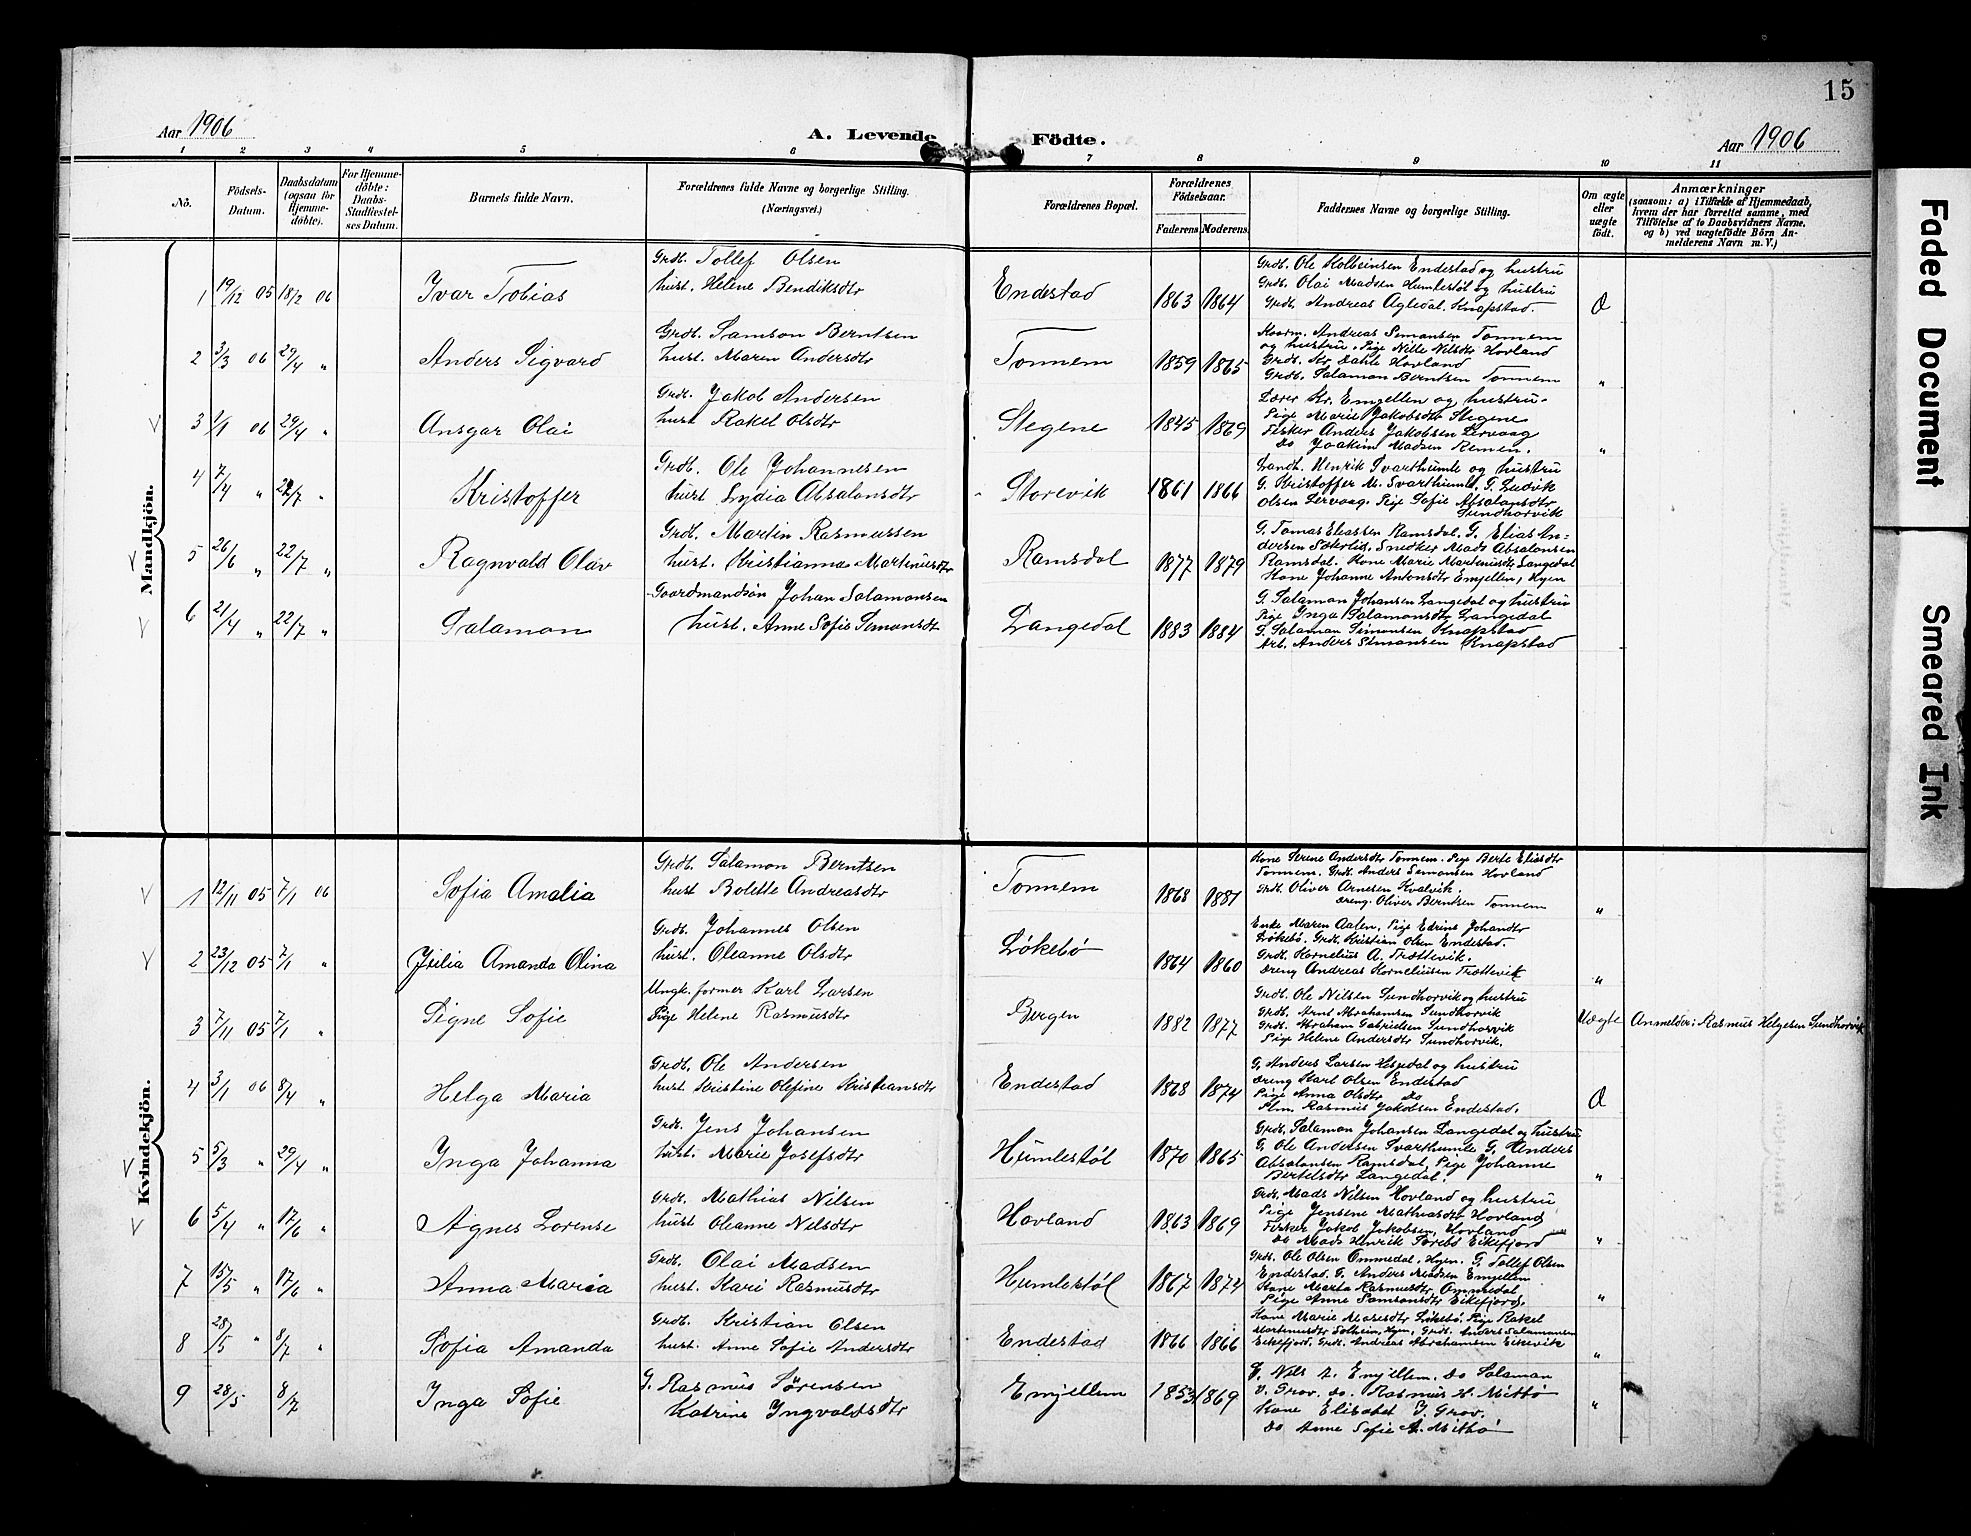 15
Aar 1906
A. Levende Födte.
Aar 1906
1 2 3 4 5 6 7 8 9 10 11
No.
Födsels-Datum.
Daabsdatum (ogsaa for Hjemmedöbte).
For Hjemmedöbte: Daabs-Stadfæstelses Datum.
Barnets fulde Navn.
Forældrenes fulde Navne og borgerlige Stilling. (Næringsvei.)
Forældrenes Bopæl.
Forældrenes Födselsaar.
Faderens Moderens
Faddernes Navne og borgerlige Stilling.
Om ægte eller uægte födt.
Anmærkninger
(saasom: a) i Tilfælde af Hjemmedaab, hvem der har forrettet samme, med Tilföielse af to Daabsvidners Navne, og b) ved uægtefödte Börn Anmelderens Navn m. V.)
Mandkjön.
1 19/12 05 18/2 06 Ivar Tobias
Grdb. Tollef Olsen
hust. Helene Bendiksdtr
Endestad 1863 1864
Grdb. Ole Kolbeinsen Endestad og hustru
Grdb. Olai Madsen Humlestøl og hustru
Grdb. Andreas Agledal, Knapstad.
Æ
2 3/3 06 29/4 „ Anders Sigvard
Grdb. Samson Berntsen
hust. Maren Andersdtr
Tonnem 1859 1865
Kaarm. Andreas Simonsen Tonnem
og hustru. Pige Nille Nilsdtr Hovland
Grdb. Kr. Dahle Hovland
Grdb. Salamon Berntsen Tonnem
„
3 1/1 06 29/4 „ Ansgar Olai
Grdb. Jakob Andersen
hust Rakel Olsdtr
Stegene 1845 1869
Lærer Kr. Emjellen og hustru.
Pige Marie Jakobsdtr Stegene
Fisker Anders Jakobsen Lervaag
Do Joakim Madsen Remen.
„
4 7/4 „ 22/7 „ Kristoffer
Grdb. Ole Johannesen
hust Lydia Absalonsdtr
Storevik 1861 1866
Landh. Henrik Svarthumle og hustru
G. Kristoffer M. Svarthumle. G. Ludvik
Olsen Lervaag. Pige Sofie Absalonsdtr
Sundhorvik
5 26/6 „ 22/7 „ Ragnvald Olav
Grdb. Martin Rasmussen
hust. Kristianna Martinusdtr
Ramsdal 1877 1879
G. Tomas Eliassen Ramsdal. G. Elias An-
dersen Sæterlid. Snedker Mads Absalonsen
Ramsdal. Kone Marie Martinusdtr Langedal
Kone Johanne Antonsdtr Emjellen, Hyen
6 21/4 „ 22/7 „ Salamon
Gaardmandsøn Johan Salamonsen
hust. Anne Sofie Simonsdt
Langedal 1883 1884
G. Salamon Johansen Langedal og hustru
Pige Inga Salamonsdtr Langedal
G. Salamon Simonsen Knapstad
Arb. Anders Simonsen Knapstad
Kvindekjön.
1 12/11 05 7/1 06 Sofia Amalia
Grdb. Salamon Berntsen
hust Bolette Andreasdtr
Tonnem 1868 1881
Kone Serine Andersdtr Tonnem. Pige Berte Eliasdtr
Tonnem. Grdb. Anders Simonsen Hovland
Grdb. Oliver Arnesen Kvalvik.
Dreng. Oliver Berntsen Tonnem
„
2 23/12 05 7/1 „ Julia Amanda Olina
Grdb. Johannes Olsen
hust. Oleanne Olsdtr
Løkebø 1864 1860
Enke Maren Aalen, Pige Edrine Johandtr
Løkebø. Grdb. Kristian Olsen Endestad.
Grdb. Kornelius A. Trættevik.
Dreng Andreas Korneliusen Trættevik
„
3 7/11 05 7/1 „ Signe Sofie
Ungk. former Karl Larsen
Pige Helene Rasmusdtr
Bergen 1882 1877
Grdb. Ole Nilsen Sundhorvik og hustru
Grdb. Arnt Abrahamsen Sundhorvik
Grdb. Abraham Gabrielsen Sundhorvik
Pige Helene Andersdtr Sundhorvik.
Uægte Anmelder: Rasmus Helgesen Sundhorvik
4 3/1 06 8/4 „ Helga Maria
Grdb. Ole Andersen
hust Kristine Olefine Kristiansdtr
Endestad 1868 1874
G. Anders Larsen Hesjedal og hustru
Dreng Karl Olsen Endestad
Pige Anna Olsdtr Do
Rasmus Jakobsen Endestad.
Æ
5 5/3 „ 29/4 „ Inga Johanna
Grdb. Jens Johansen
hust. Marie Josefsdtr
Humlestøl 1870 1865
Grdb. Salamon Johansen Langedal og hustru
G. Ole Andersen Svarthumle G. Anders
Absalonsen Ramsdal, Pige Johanne
Bertelsdtr Langedal.
„
6 5/4 „ 17/6 „ Agnes Lorense
Grdb. Mathias Nilsen
hust Oleanne Nilsdtr
Hovland 1863 1869
Grdb. Mads Nilsen Hovland og hustru
Pige Jensine Mathiasdtr Hovland
Fisker Jakob Jakobsen, Hovland
Do Mads Henrik Sørebø Eikefjord
„
7 15/5 „ 17/6 „ Anna Maria
Grdb. Olai Madsen
hust. Kari Rasmusdtr
Humlestøl 1867 1874
Grdb. Ole Olsen Ommedal, Hyen. G. Tollef Olsen
Endestad. G. Anders Madsen Emjellem
Kone Marta Rasmusdtr Ommedal
Pige Anne Samsonsdtr Eikefjord.
„
8 28/5 „ 8/7 „ Sofia Amanda
Grdb. Kristian Olsen
hust. Anne Sofie Andersdtr
Endestad 1866 1866
Kone Marie Mosesdtr Løkebø, Pige Rakel
Martinusdtr Solheim, Hyen, Grdb. Anders Salamonsen
Eikefjord. Grdb. Andreas Abrahamsen Eikevik
„
9 28/5 8/7 Inga Sofie
G. Rasmus Sørensen
Katrine Ingvaldsdtr
Emjellem 1853 1869
G. Nils A. Emjellem. Do Salamon
V. Grov. Do. Rasmus H. Mittbø
Kone Elisabet J. Grov.
Do Anne Sofie A. Mitbø
„
Faded Document
Smeared Ink